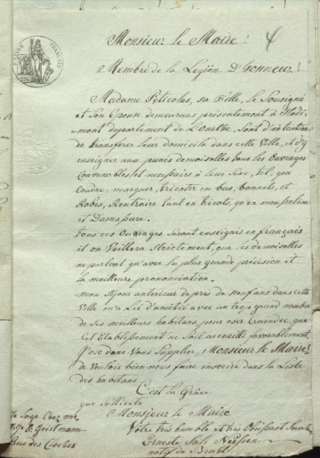 Monsieur le Maire!
Membre de la Legion D'honneur!
Madame Peticolas, sa Fille, le Sousigné
et son Epouse demeurans présentement à
mont département de L'ourthe, sont d'intention
de transférer leur domicile dans cette Ville, et d'y
enseigner aux jeunes demoiselles tous les Ouvrages
Convenables et necessaires à leur Sexe, tel, que
coudre, marquer, tricoter en bas, bonnets, et
Robes, tant en tricots, qu'en mousseline
et Damassure.
Tous ces Ouvrages seront enseignés en français
et on Veillera strictement, que les demoiselles
ne parlent qu'avec la plus grande précision et
la meilleure prononciation
mon Sejour anterieur de près de neuf ans dans cette
Ville m'a Lié d'amitié avec un trop grand nombre
de Ses meilleurs habitans, pour oser Craindre, que
Cet Etablissement ne soit accueilli favorablement
J'ose donc Vous Supplier, Monsieur le Maire
de Vouloir bien nous faire inscrire dans la Liste
des habitans
C'est la Grâce
que sollicite
Monsieur le Maire
Votre très humble et très Obéissant
natif de
Loge Chez